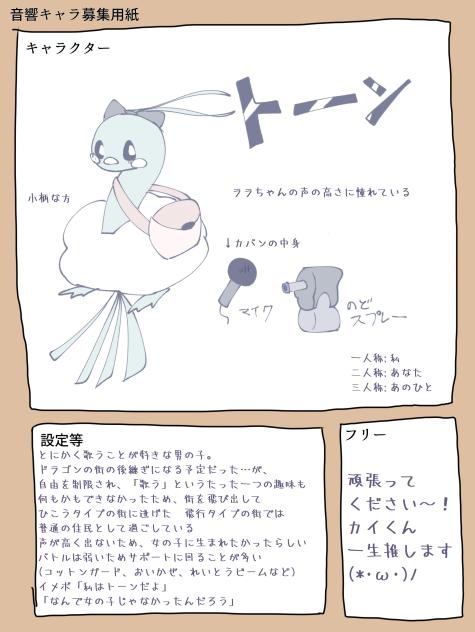 音響キャラ募集用紙
キャラクター
トーン
小柄な方
ララちゃんの声の高さに憧れている
↓カバンの中身
マイク
のど
スプレー
一人称:私
二人称:あなた
三人称:あのひと
設定等
とにかく歌うことが好きな男の子。
ドラゴンの街の後継ぎになる予定だった…が、
自由を制限され、「歌う」というたった一つの趣味も
何もかもできなかったため、街を飛び出して
ひこうタイプの街に逃げた　飛行タイプの街では
普通の住民として過ごしている
声が高く出ないため、女の子に生まれたかったらしい
バトルは弱いためサポートに回ることが多い
(コットンガード、おいかぜ、れいとうビームなど)
イメボ「私はトーンだよ」
「なんで女の子じゃなかったんだろう」
フリー
頑張って
ください〜！
カイくん
一生推します
(*・ω・)/